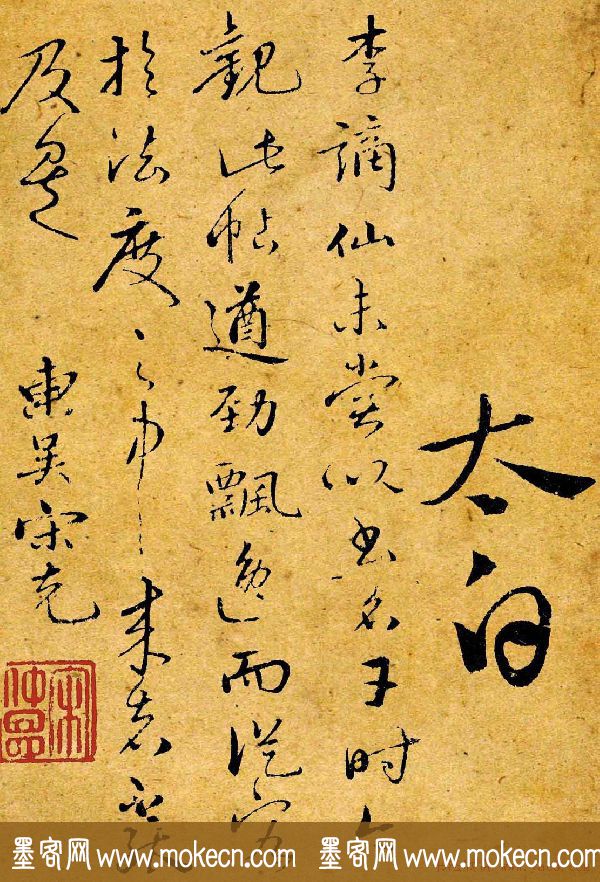 太白
李謫仙未嘗以書名于時今
觀此帖遒勁飄逸而從容
於法度之中
及是
東吴宋克
宋仲昷
墨客网 www.mokecn.com 墨客网 www.mokecn.com